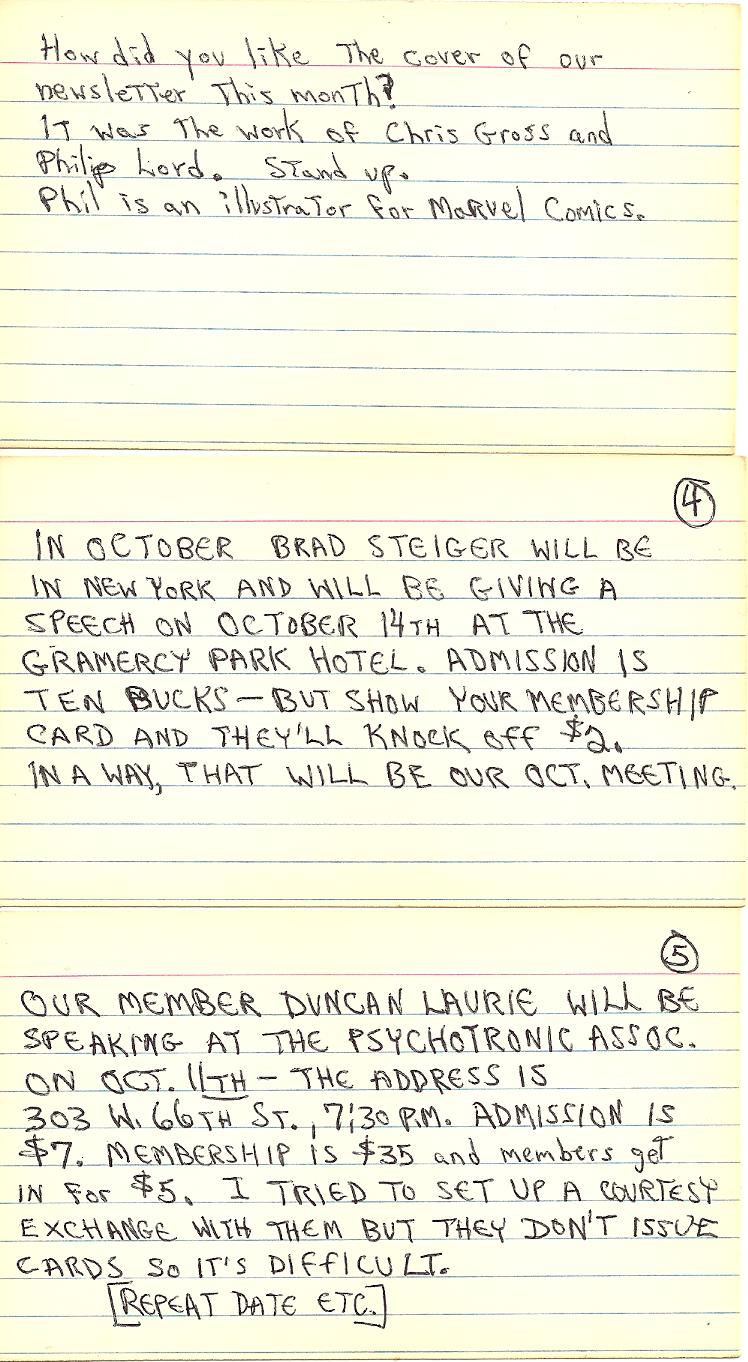 How did you like The cover of our
newsletter This month?
IT was The work of Chris Gross and
Philip Lord. Stand up.
Phil is an illustrator for Marvel Comics.
4
IN OCTOBER BRAD STEIGER WILL BE
IN NEW YORK AND WILL BE GIVING A
SPEECH ON OCTOBER 14TH AT THE
GRAMERCY PARK HOTEL. ADMISSION IS
TEN BUCKS - BUT SHOW YOUR MEMBERSHIP
CARD AND THEY'LL KNOCK OFF $2.
IN A WAY, THAT WILL BE OUR OCT. MEETING.
5
OUR MEMBER DUNCAN LAURIE WILL BE
SPEAKING AT THE PSYCHOTRONIC ASSOC.
ON OCT. 11TH - THE ADDRESS IS
303 W. 66TH ST., 7:30 P.M. ADMISSION IS
$7. MEMBERSHIP IS $35 and members get
IN FOR $5. I TRIED TO SET UP A COURTESY
EXCHANGE WITH THEM BUT THEY DON'T ISSUE
CARDS SO IT'S DIFFICULT.
[REPEAT DATE ETC.]